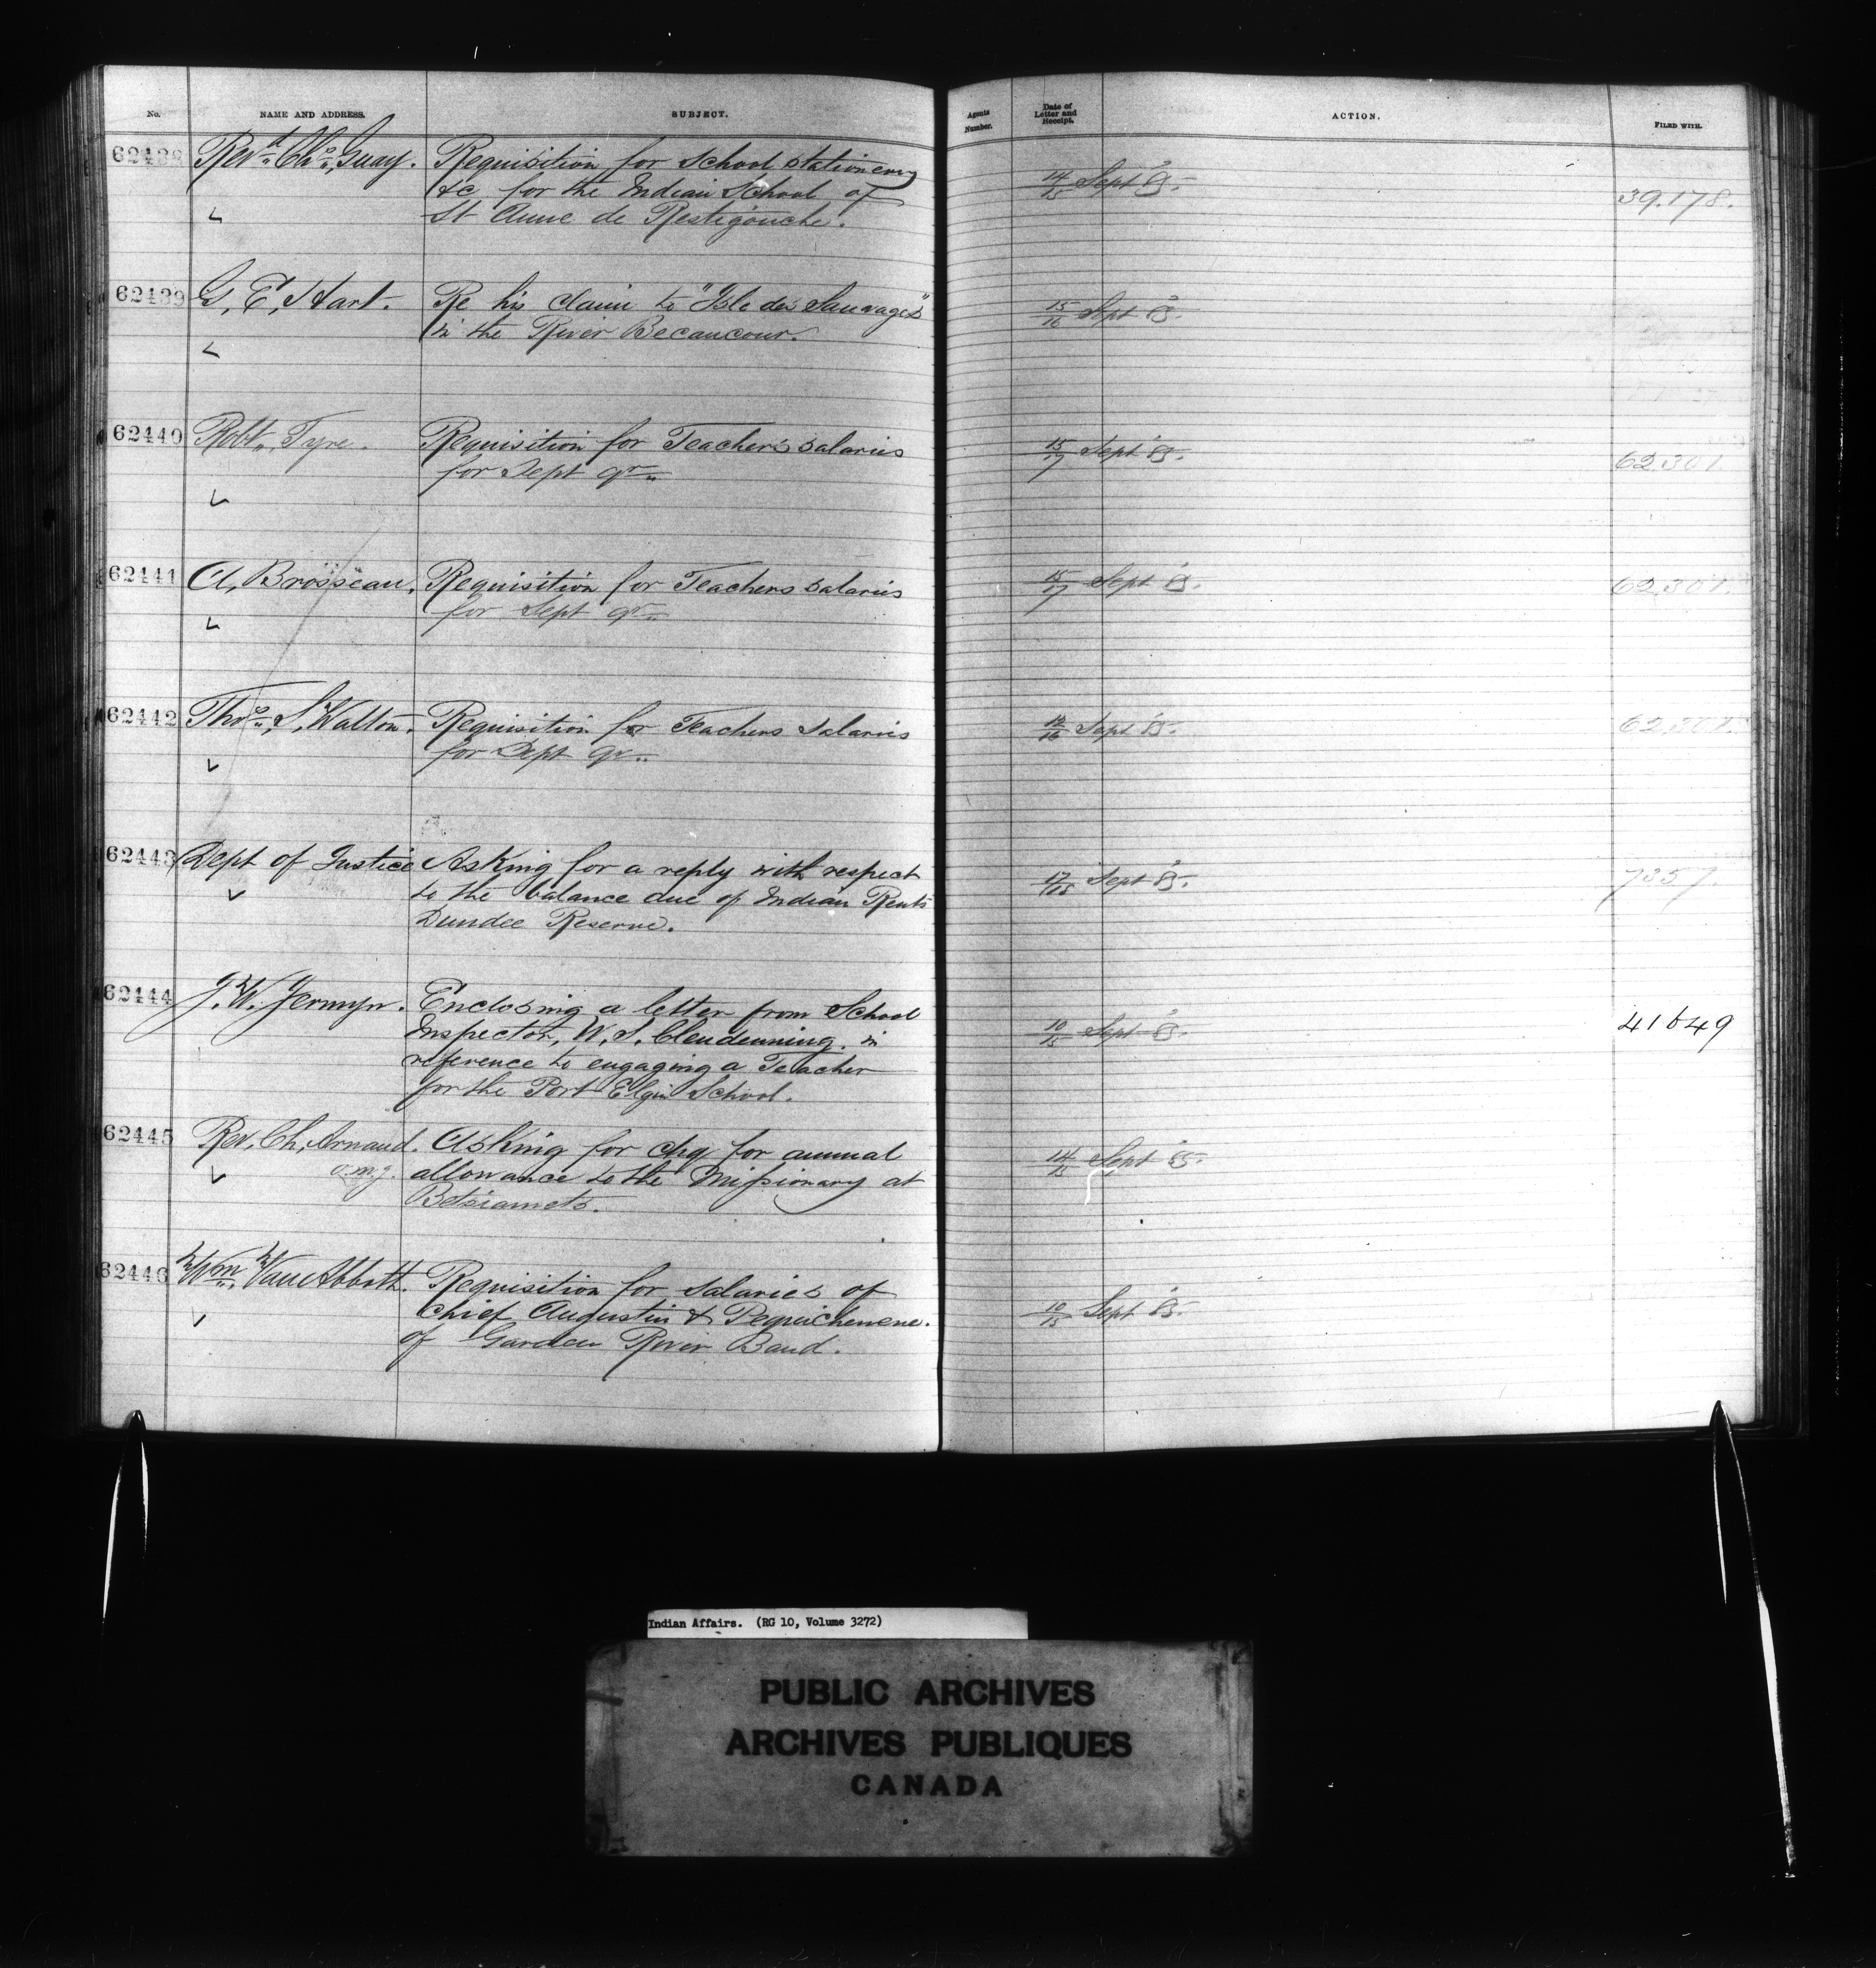 No. NAME AND ADDRESS. SUBJECT. Agents Number. Date of Letter and Receipt. ACTION. FILED WITH.
62438 Revd. Chs. Guay. Requisition for school stationery 14/15 Sept 85. 39.178.
&c for the Indian School of
St Anne de Restigouche.
62439 G. E. Hart. Re his claim to "Isle des Sauvages" 15/16 Sept 85.
in the River Becancour.
62440 Robt. Tyre. Requisition for Teachers salaries 15/17 Sept 85. 62.307.
for Sept qr.
62441 A. Brosseau. Requisition for Teachers salaries 15/17 Sept 85. 62.307.
for Sept qr.
62442 Thos. S. Walton. Requisition for Teachers salaries 14/16 Sept 85. 62.307.
for Sept qr.
62443 Dept of Justice Asking for a reply with respect 17/18 Sept 85. 7357.
to the balance due of Indian Rents
Dundee Reserve.
62444 J. W. Jermyn. Enclosing a letter from School 10/15 Sept 85. 41649
Inspector, W. S. Clendenning. in
reference to engaging a Teacher
for the Port Elgin School.
62445 Rev. Ch. Arnaud. Asking for chq for annual 14/15 Sept 85.
o.m.j. allowance to the Missionary at
Betsiamets.
62446 Wm. Van Abbott. Requisition for salaries of 10/15 Sept 85.
Chief Augustin & Pequichenene.
of Garden River Band.
Indian Affairs. (RG 10, Volume 3272)
PUBLIC ARCHIVES
ARCHIVES PUBLIQUES
CANADA